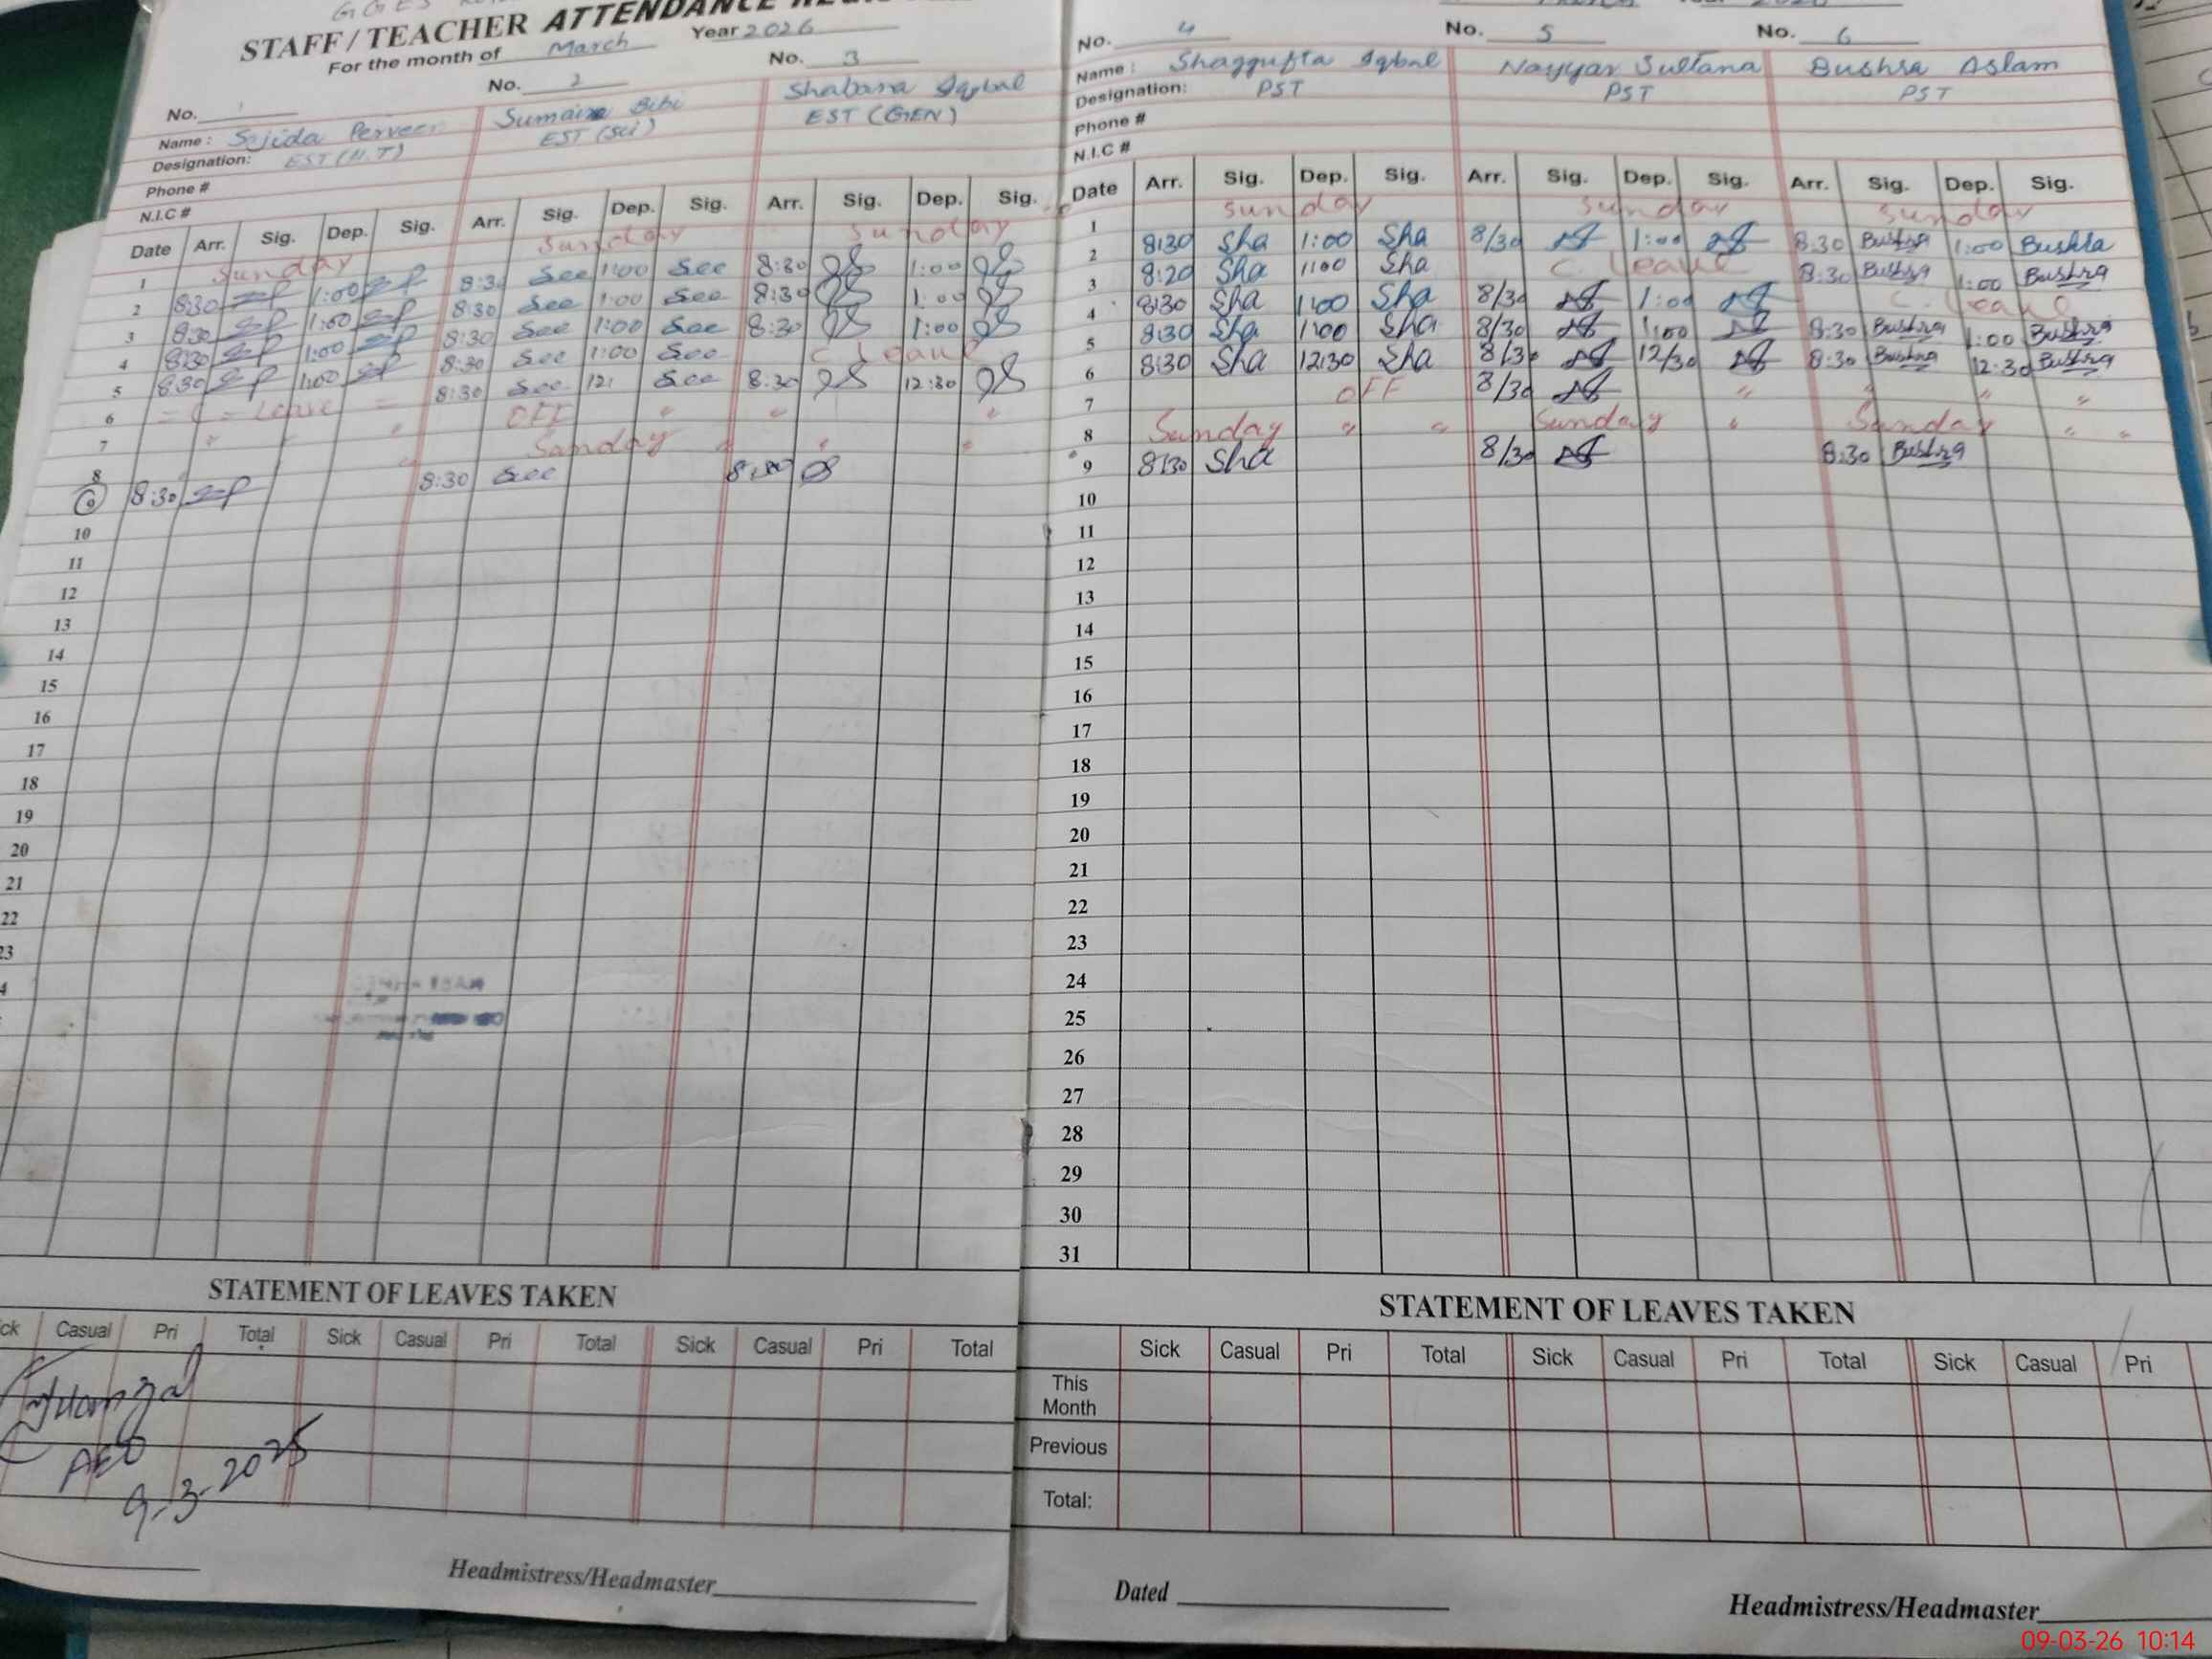 GGES
STAFF/TEACHER ATTENDANCE
For the month of March Year 2026
No. 1 No. 2 No. 3
Name: Sajida Perveen Sumaira Bibi Shabana Iqbal
Designation: EST (H.T) EST (Sci) EST (GEN)
Phone #
N.I.C #
Date Arr. Sig. Dep. Sig. Arr. Sig. Dep. Sig. Arr. Sig. Dep. Sig.
1 Sunday Sunday Sunday
2 8:30 1:00 8:30 See 1:00 See 8:30 1:00
3 8:30 1:00 8:30 See 1:00 See 8:30 1:00
4 8:30 1:00 8:30 See 1:00 See 8:30 1:00
5 8:30 1:00 8:30 See 1:00 See C Leave
6 = C = Leave = 8:30 See 12: See 8:30 12:30
7 " " OFF " " "
8 Sunday " " "
9 8:30 8:30 See 8:30
10
11
12
13
14
15
16
17
18
19
20
21
22
23
4
STATEMENT OF LEAVES TAKEN
ck Casual Pri Total Sick Casual Pri Total Sick Casual Pri Total
AEO
9-3-2025
Headmistress/Headmaster
No. 4 No. 5 No. 6
Name: Shaggufta Iqbal Nayyar Sultana Bushra Aslam
Designation: PST PST PST
Phone #
N.I.C #
Date Arr. Sig. Dep. Sig. Arr. Sig. Dep. Sig. Arr. Sig. Dep. Sig.
1 Sunday Sunday Sunday
2 8:30 Sha 1:00 Sha 8/30 1:00 8:30 Bushra 1:00 Bushra
3 8:20 Sha 1:00 Sha C. Leave 8:30 Bushra 1:00 Bushra
4 8:30 Sha 1:00 Sha 8/30 1:00 C. Leave
5 8:30 Sha 1:00 Sha 8/30 1:00 8:30 Bushra 1:00 Bushra
6 8:30 Sha 12:30 Sha 8/30 12/30 8:30 Bushra 12:30 Bushra
7 OFF 8/30 " " " "
8 Sunday " " Sunday " Sunday " "
9 8:30 Sha 8/30 8:30 Bushra
10
11
12
13
14
15
16
17
18
19
20
21
22
23
24
25
26
27
28
29
30
31
STATEMENT OF LEAVES TAKEN
Sick Casual Pri Total Sick Casual Pri Total Sick Casual Pri
This Month
Previous
Total:
Dated Headmistress/Headmaster
09-03-26 10:14